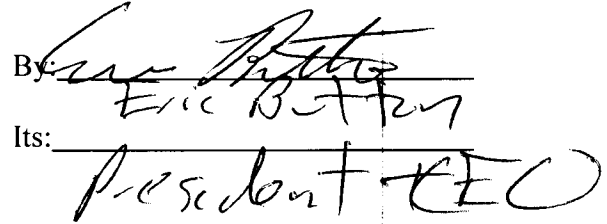 By:
Eric Button
Its:
President + CEO